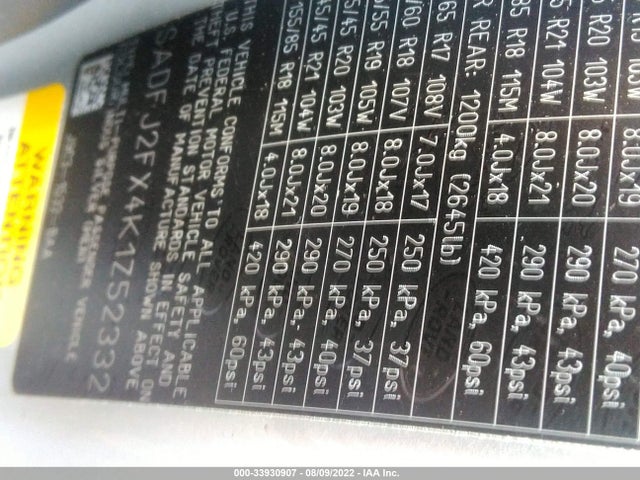 8.0Jx19 270 kPa, 40psi
R20 103W 8.0Jx20 290 kPa, 43psi
R21 104W 8.0Jx21 290 kPa, 43psi
85 R18 115M 4.0Jx18 420 kPa, 60psi
R REAR: 1200kg (2645lb)
65 R17 108V 7.0Jx17 250 kPa, 37psi
/60 R18 107V 8.0Jx18 250 kPa, 37psi
/55 R19 105W 8.0Jx19 270 kPa, 40psi
5/45 R20 103W 8.0Jx20 290 kPa, 43psi
45/45 R21 104W 8.0Jx21 290 kPa, 43psi
155/85 R18 115M 4.0Jx18 420 kPa, 60psi
THIS VEHICLE CONFORMS TO ALL APPLICABLE
U.S. FEDERAL MOTOR VEHICLE SAFETY AND
THEFT PREVENTION STANDARDS IN EFFECT ON
THE DATE OF MANUFACTURE SHOWN ABOVE
SADFJ2FX4K1Z52332
PASSENGER VEHICLE
WARNING
000-33930907 - 08/09/2022 - IAA Inc.